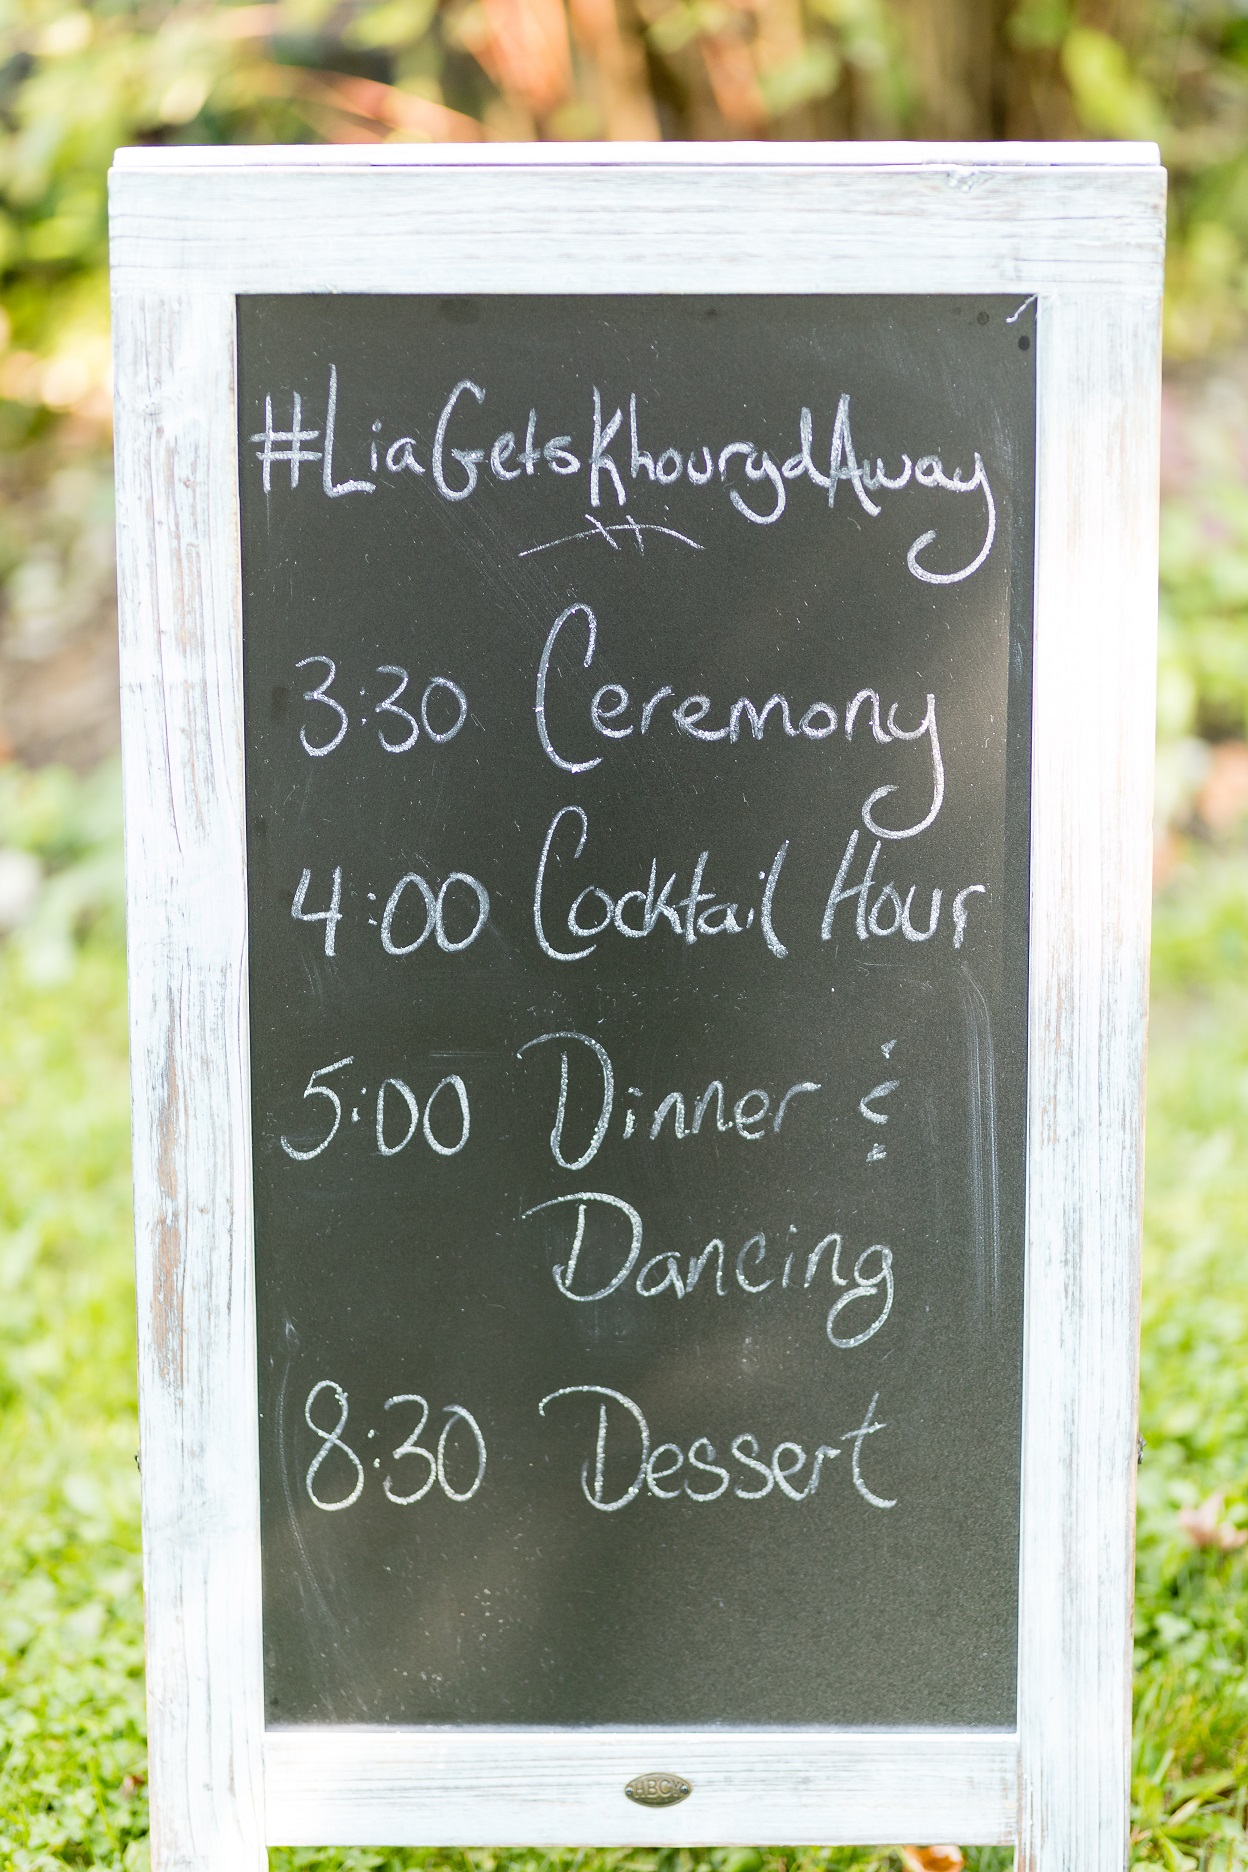 #LiaGetsKhourydAway
3:30 Ceremony
4:00 Cocktail Hour
5:00 Dinner &
Dancing
8:30 Dessert